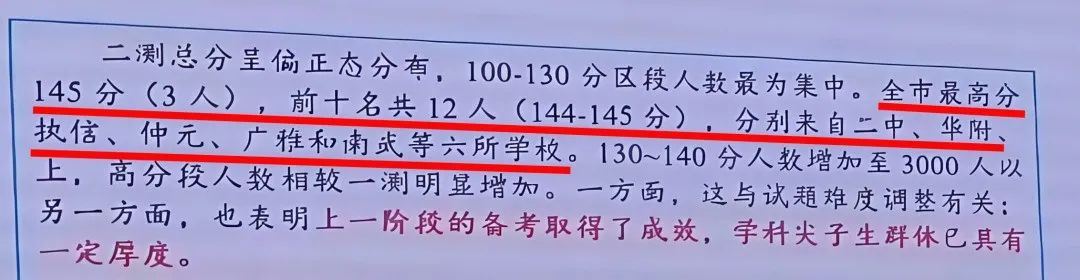 二测总分呈偏正态分布，100-130 分区段人数最为集中。全市最高分
145 分（3 人），前十名共 12 人（144-145 分），分别来自二中、华附、
执信、仲元、广雅和南武等六所学校。130~140 分人数增加至 3000 人以
上，高分段人数相较一测明显增加。一方面，这与试题难度调整有关；
另一方面，也表明上一阶段的备考取得了成效，学科尖子生群体已具有
一定厚度。